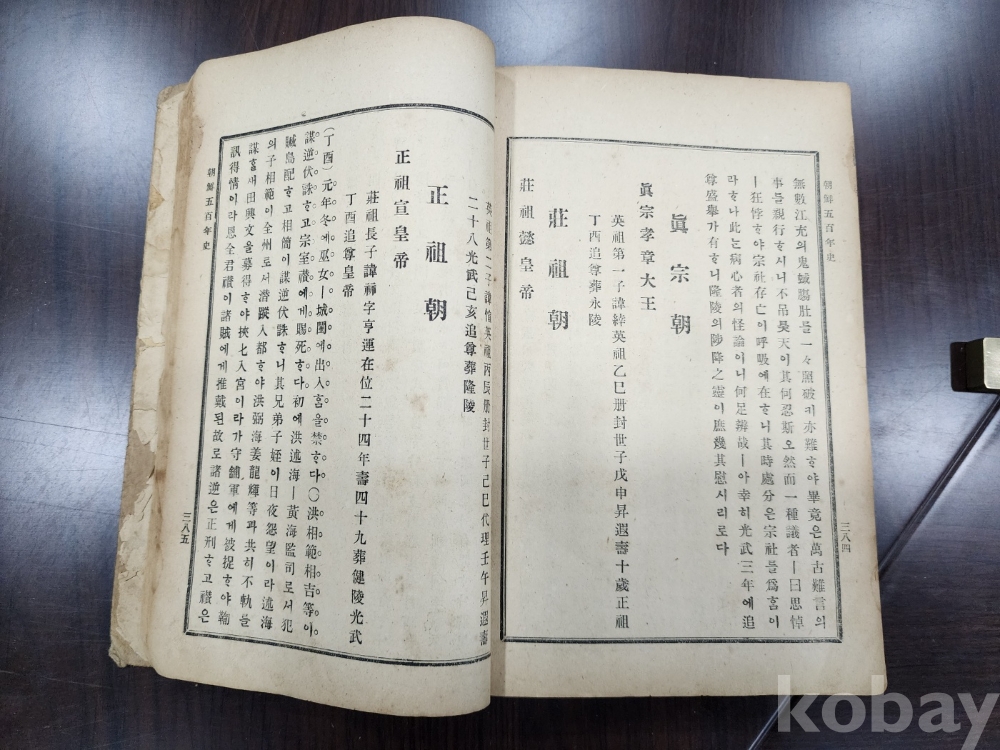 朝鮮五百年史
三八四
無數江充의鬼蜮膓肚를一々照破키亦難ᄒᆞ야畢竟은萬古難言의
事를親行ᄒᆞ시니不吊昊天이其何忍斯오然而一種議者ㅣ曰思悼
ㅣ狂悖ᄒᆞ야宗社存亡이呼吸에在ᄒᆞ니其時處分은宗社를爲ᄒᆞᆷ이
라ᄒᆞ나此는病心者의怪論이니何足辨哉ㅣ아幸히光武三年에追
尊盛擧가有ᄒᆞ니隆陵의陟降之靈이庶幾其慰시리로다
眞宗朝
眞宗孝章大王
英祖第一子諱緈英祖乙巳册封世子戊申昇遐壽十歲正祖
丁酉追尊葬永陵
莊祖朝
莊祖懿皇帝
英祖第二子諱愃英祖丙辰册封世子己巳代理壬午昇遐壽
二十八光武己亥追尊葬隆陵
正祖朝
正祖宣皇帝
莊祖長子諱祘字亨運在位二十四年壽四十九葬健陵光武
丁酉追尊皇帝
(丁酉)元年冬에巫女ㅣ城闉에出入ᄒᆞᆷ을禁ᄒᆞ다○洪相範相吉等이
謀逆伏誅ᄒᆞ고宗室禶에게賜死ᄒᆞ다初에洪述海ㅣ黃海監司로셔犯
贓島配ᄒᆞ고相簡이謀逆伏誅ᄒᆞ니其兄弟子姪이日夜怨望이라述海
의子相範이全州로셔潛蹤入都ᄒᆞ야洪弼海姜龍輝等과共히不軌를
謀ᄒᆞᆯᄉᆡ田興文을募得ᄒᆞ야挾匕入宮이라가守鋪軍에게被捉ᄒᆞ야鞫
訊得情이라恩全君禶이諸賊에게推戴된故로諸逆은正刑ᄒᆞ고禶은
朝鮮五百年史
三八五
kobay